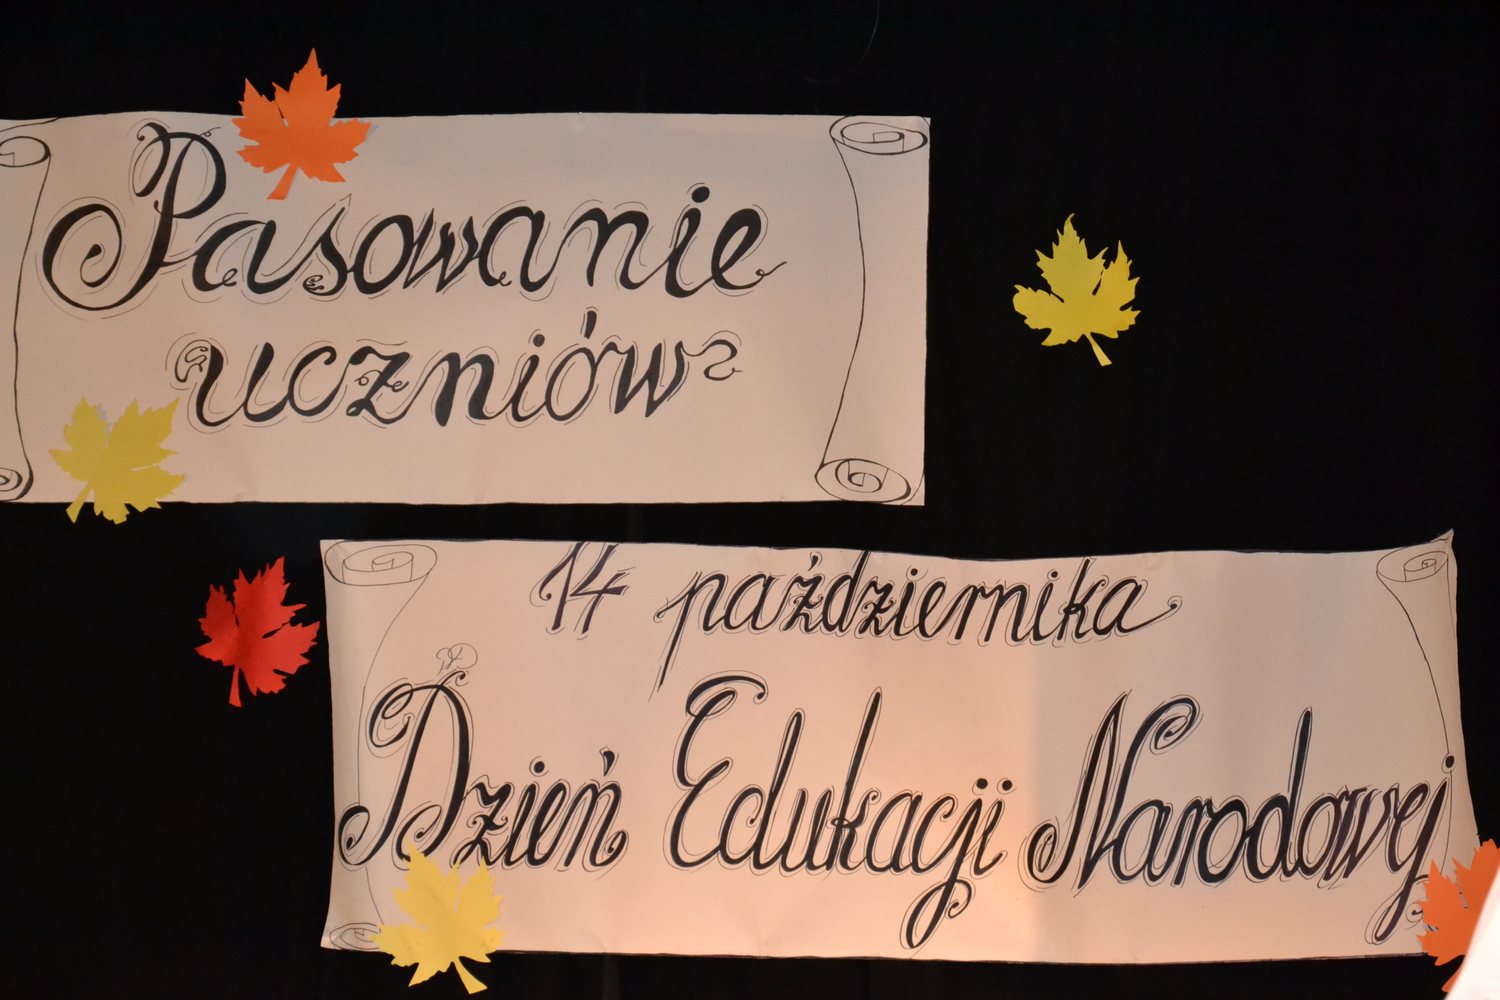 Pasowanie
uczniów
14 października
Dzień Edukacji Narodowej